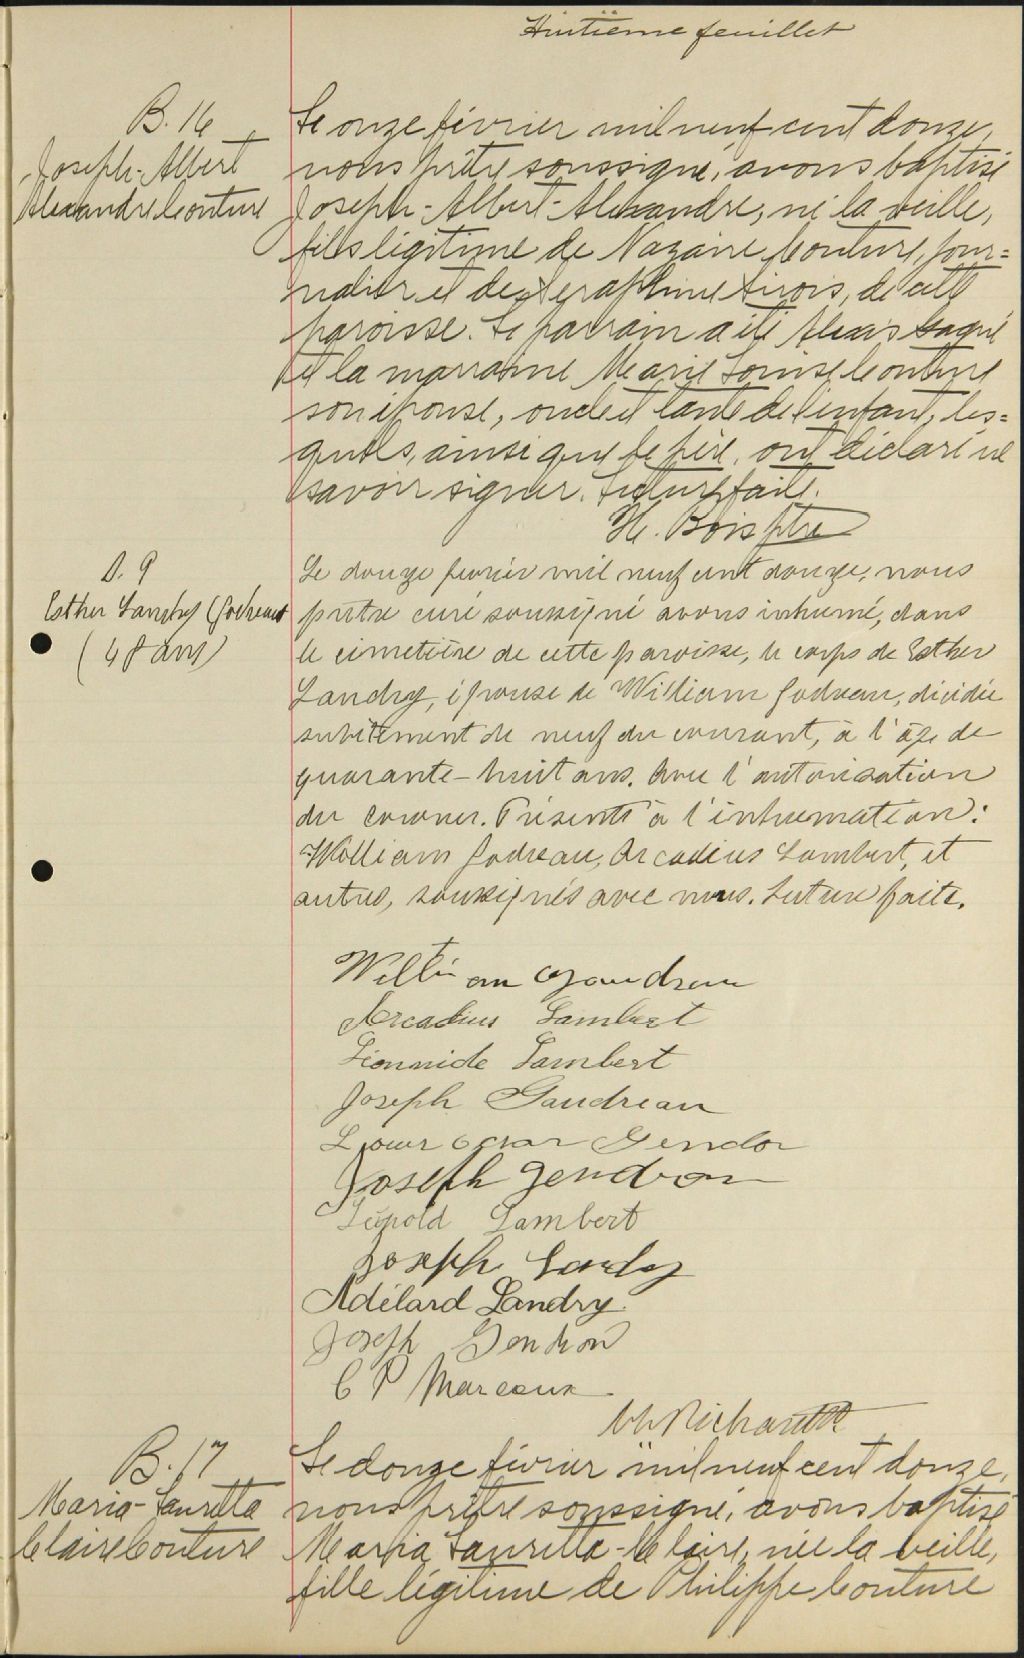 Huitième feuillet
B. 16
Joseph-Albert
Alexandre Couture
Le onze février mil neuf cent douze,
nous prêtre soussigné, avons baptisé
Joseph-Albert-Alexandre, né la veille,
fils légitime de Nazaire Couture, jour=
nalier et de Séraphine Sirois, de cette
paroisse. Le parrain a été Alexis Gagné
et la marraine Marie Louise Couture
son épouse, oncle et tante de l'enfant, les=
quels, ainsi que le père, ont déclaré ne
savoir signer. Lecture faite.
H. Bois ptre
S. 9
Esther Landry (Godreau
(48 ans)
Le douze fevrier mil neuf cent douze, nous
prêtre curé soussigné avons inhumé, dans
le cimetière de cette paroisse, le corps de Esther
Landry, épouse de William Godreau, décédée
subitement le neuf du courant, à l'âge de
quarante-huit ans. Avec l'autorisation
du coroner. Présents à l'inhumation:
William Godreau, Arcadius Lambert, et
autres, soussignés avec nous. Lecture faite.
William Gaudreau
Arcadius Lambert
Léonnide Lambert
Joseph Gaudreau
Gendor
Joseph Gendron
Léopold Lambert
Joseph Landry
Adélard Landry.
Joseph Gendron
C P Marceaux
Richard
B. 17
Maria-Lauretta
Claire Couture
Le douze février mil neuf cent douze,
nous prêtre soussigné, avons baptisé
Maria Lauretta-Claire, née la veille,
fille légitime de Philippe Couture